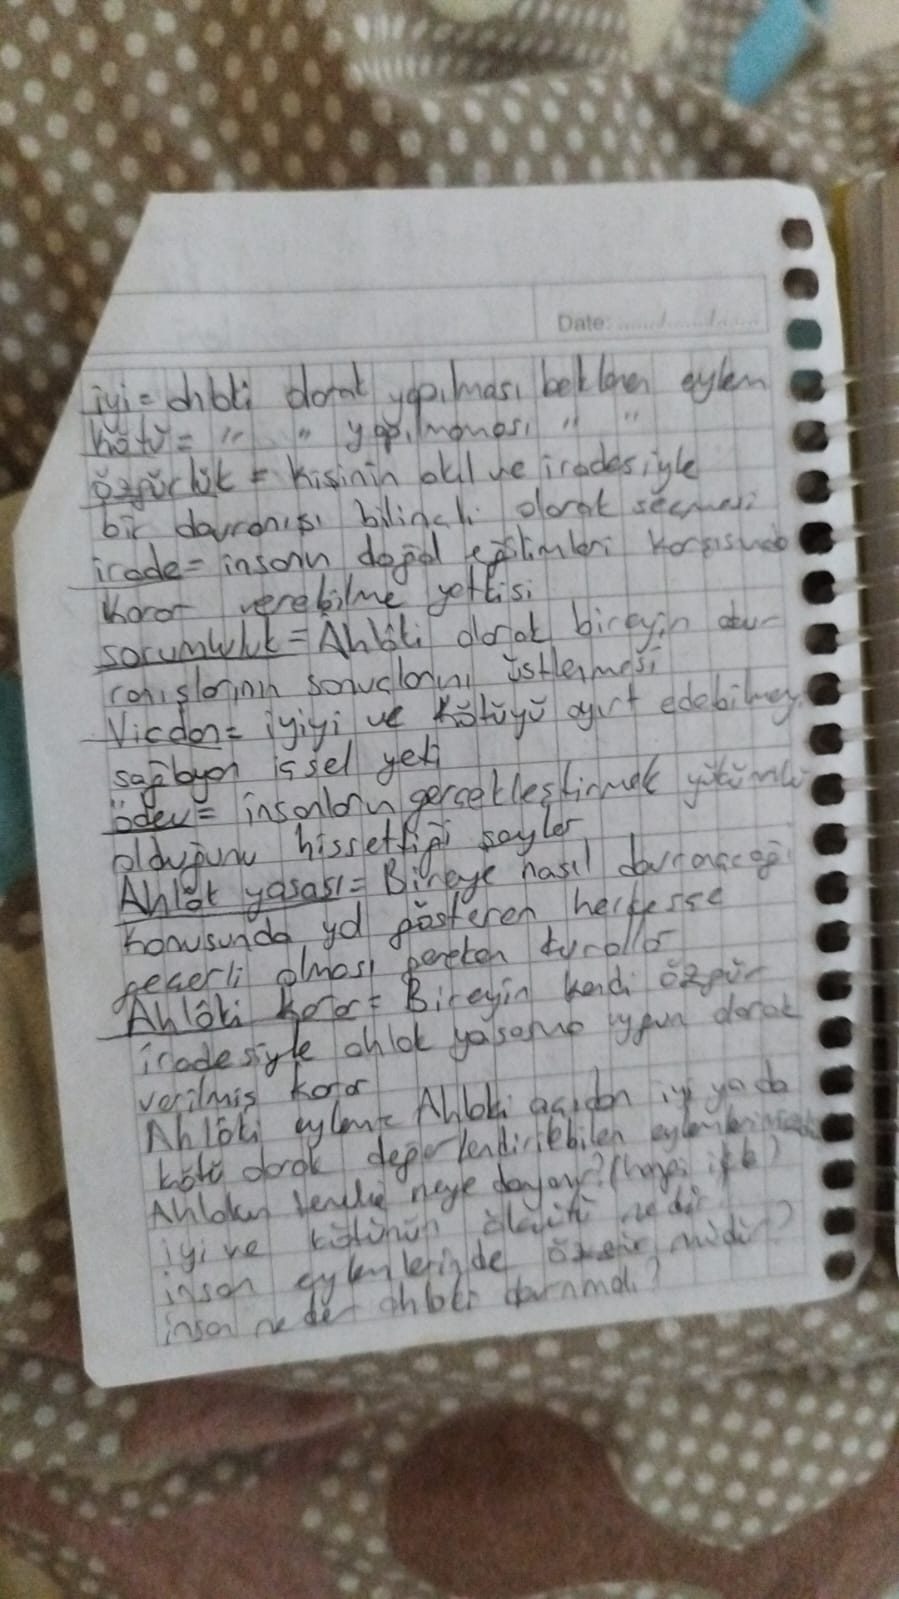 Date: ...../...../.....
iyi = ahlaki olarak yapılması beklenen eylem
kötü = " " yapılmaması " "
özgürlük = kişinin akıl ve iradesiyle
bir davranışı bilinçli olarak seçmesi
irade = insanın doğal eğilimleri karşısında
karar verebilme yetkisi
sorumluluk = Ahlâki olarak bireyin dav-
ranışlarının sonuçlarını üstlenmesi
Vicdan = iyiyi ve kötüyü ayırt edebilmey
sağlayan içsel yeti
ödev = insanların gerçekleştirmek yükümlü
olduğunu hissettiği şeyler
Ahlâk yasası = Bireye nasıl davranacağı
konusunda yol gösteren herkesçe
geçerli olması gereken kurallar
Ahlâki karar = Bireyin kendi özgür
iradesiyle ahlak yasasına uygun olarak
verilmiş karar
Ahlâki eylem = Ahlaki açıdan iyi ya da
kötü olarak değerlendirilebilen
Ahlakın temeli neye dayanır? (hangi ilke?
iyi ve kötünün ölçütü nedir
insan eylemlerinde özgür müdür?
insan neden ahlaki davranmalı?